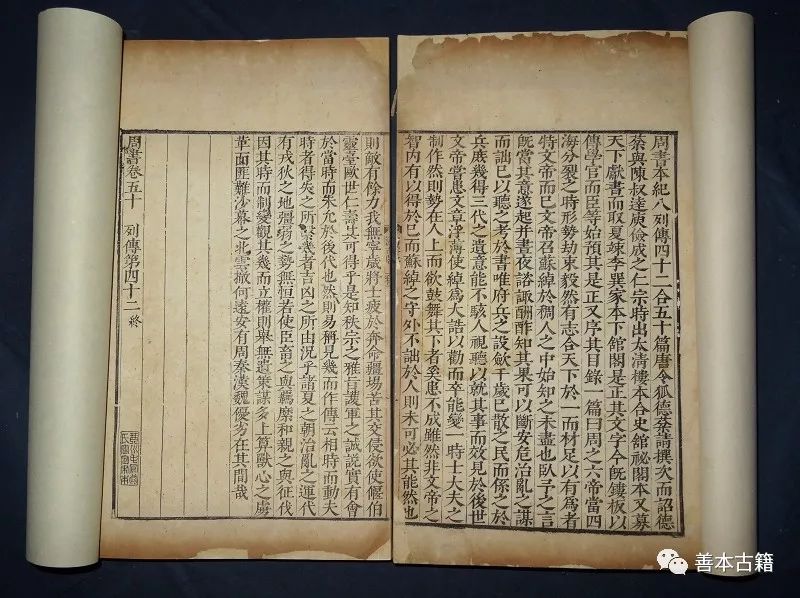 周書本紀八列傳四十二合五十篇唐令狐德棻請撰次而詔德
棻與陳叔達庾儉成之仁宗時出太清樓本合史館祕閣本又募
天下獻書而取夏竦李巽家本下館閣是正其文字今旣鏤板以
傳學官而臣等始預其是正又序其目錄一篇曰周之六帝當四
海分裂之時形勢劫束毅然有志合天下於一而材足以有爲者
特文帝而已文帝召蘇綽於稠人之中始知之未盡也臥予之言
旣當其意遂起并晝夜諮諏酬酢知其果可以斷安危治亂之謀
而詘已以聽之考於書唯府兵之設斂千歲已散之民而係之於
兵庶幾得三代之遺意能不駭人視聽以就其事而效見於後世
文帝嘗患文章浮薄使綽爲大誥以勸而卒能變一時士大夫之
制作然則勢在人上而欲鼓舞其下者奚患不成雖然非文帝之
智内有以得於已而蘇綽之守外不詘於人則未可必其能然也
則敵有餘力我無寧歲將士疲於奔命疆場苦其交侵欲使偃伯
靈臺歐世仁壽其可得乎是知秩宗之雅旨護軍之誠説實有會
於當時而朱允於後代也然則易稱見幾而作傳云相時而動夫
時者得失之所繫幾者吉凶之所由況乎諸夏之朝治亂之運代
有戎狄之地彊弱之勢無恒若使臣畜之與羈縻和親之與征伐
因其時而制變觀其幾而立權則舉無遺策謀多上算獸心之虜
革面匪難沙幕之北雲撤何遠安有周秦漢魏優劣在其間哉
周書卷五十 列傳第四十二 終
善本古籍